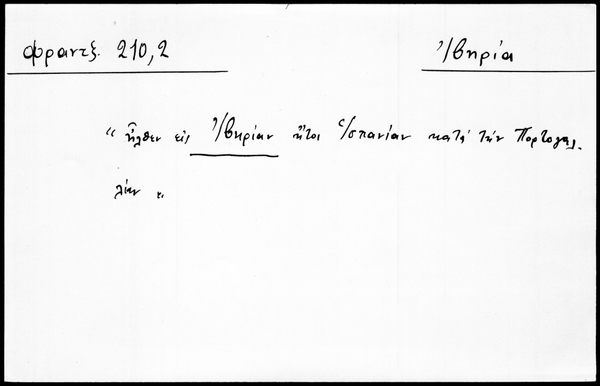 Φραντζ. 210,2 Ἰβηρία
"ἦλθεν εἰς Ἰβηρίαν ἤτοι Ἱσπανίαν κατὰ τὴν Πορτογαλ-
λίαν "